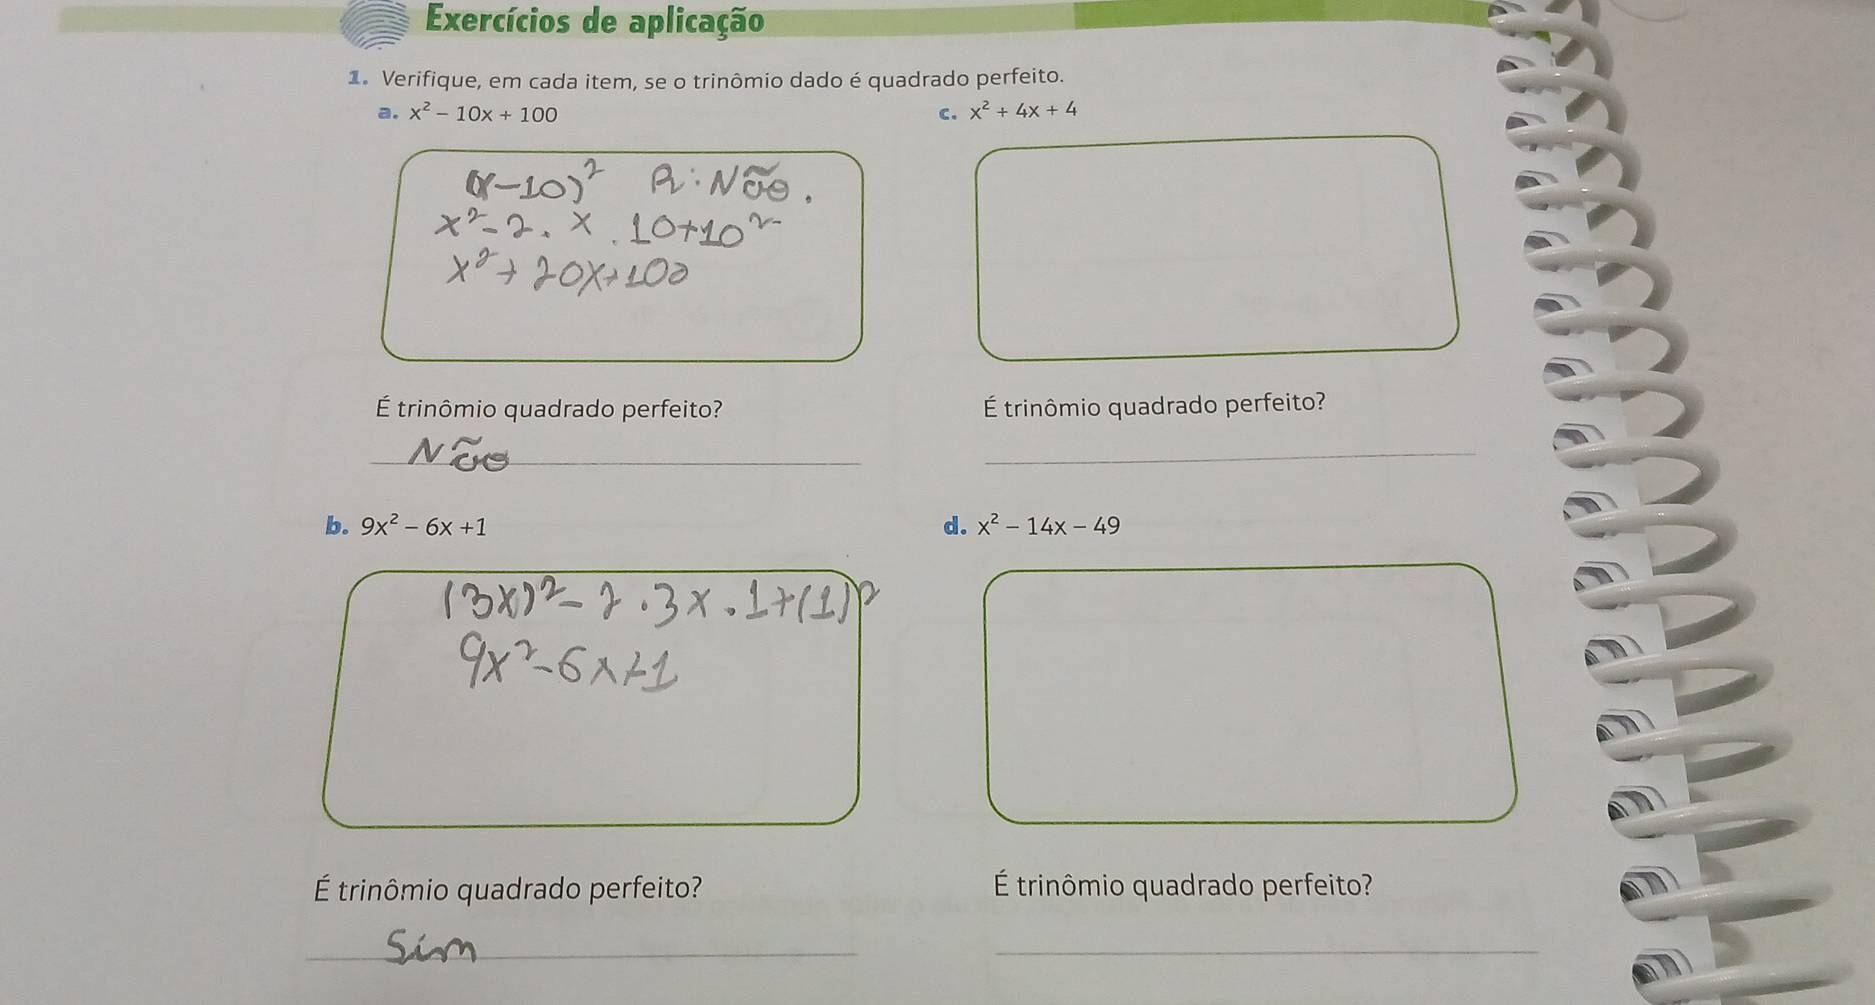 Exercícios de aplicação
1. Verifique, em cada item, se o trinômio dado é quadrado perfeito.
a. x² − 10x + 100
(x-10)² R: Não.
x²-2.x.10+10²
x²+20x+100
É trinômio quadrado perfeito?
Não
b. 9x² − 6x +1
(3x)²-2.3x.1+(1)²
9x²-6x+1
É trinômio quadrado perfeito?
Sim
c. x² + 4x + 4
É trinômio quadrado perfeito?
d. x² − 14x − 49
É trinômio quadrado perfeito?